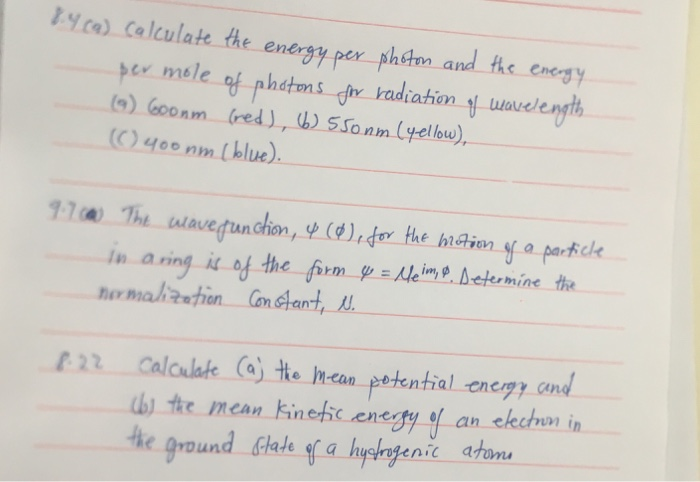 8.4(a) Calculate the energy per photon and the energy
per mole of photons for radiation of wavelength
(a) 600nm (red), (b) 550nm (yellow),
(c) 400 nm (blue).
9.7(a) The wavefunction, ψ(ϕ), for the motion of a particle
in a ring is of the form ψ = Ne^{im_lϕ}. Determine the
normalization Constant, N.
8.22 Calculate (a) the mean potential energy and
(b) the mean kinetic energy of an electron in
the ground state of a hydrogenic atom